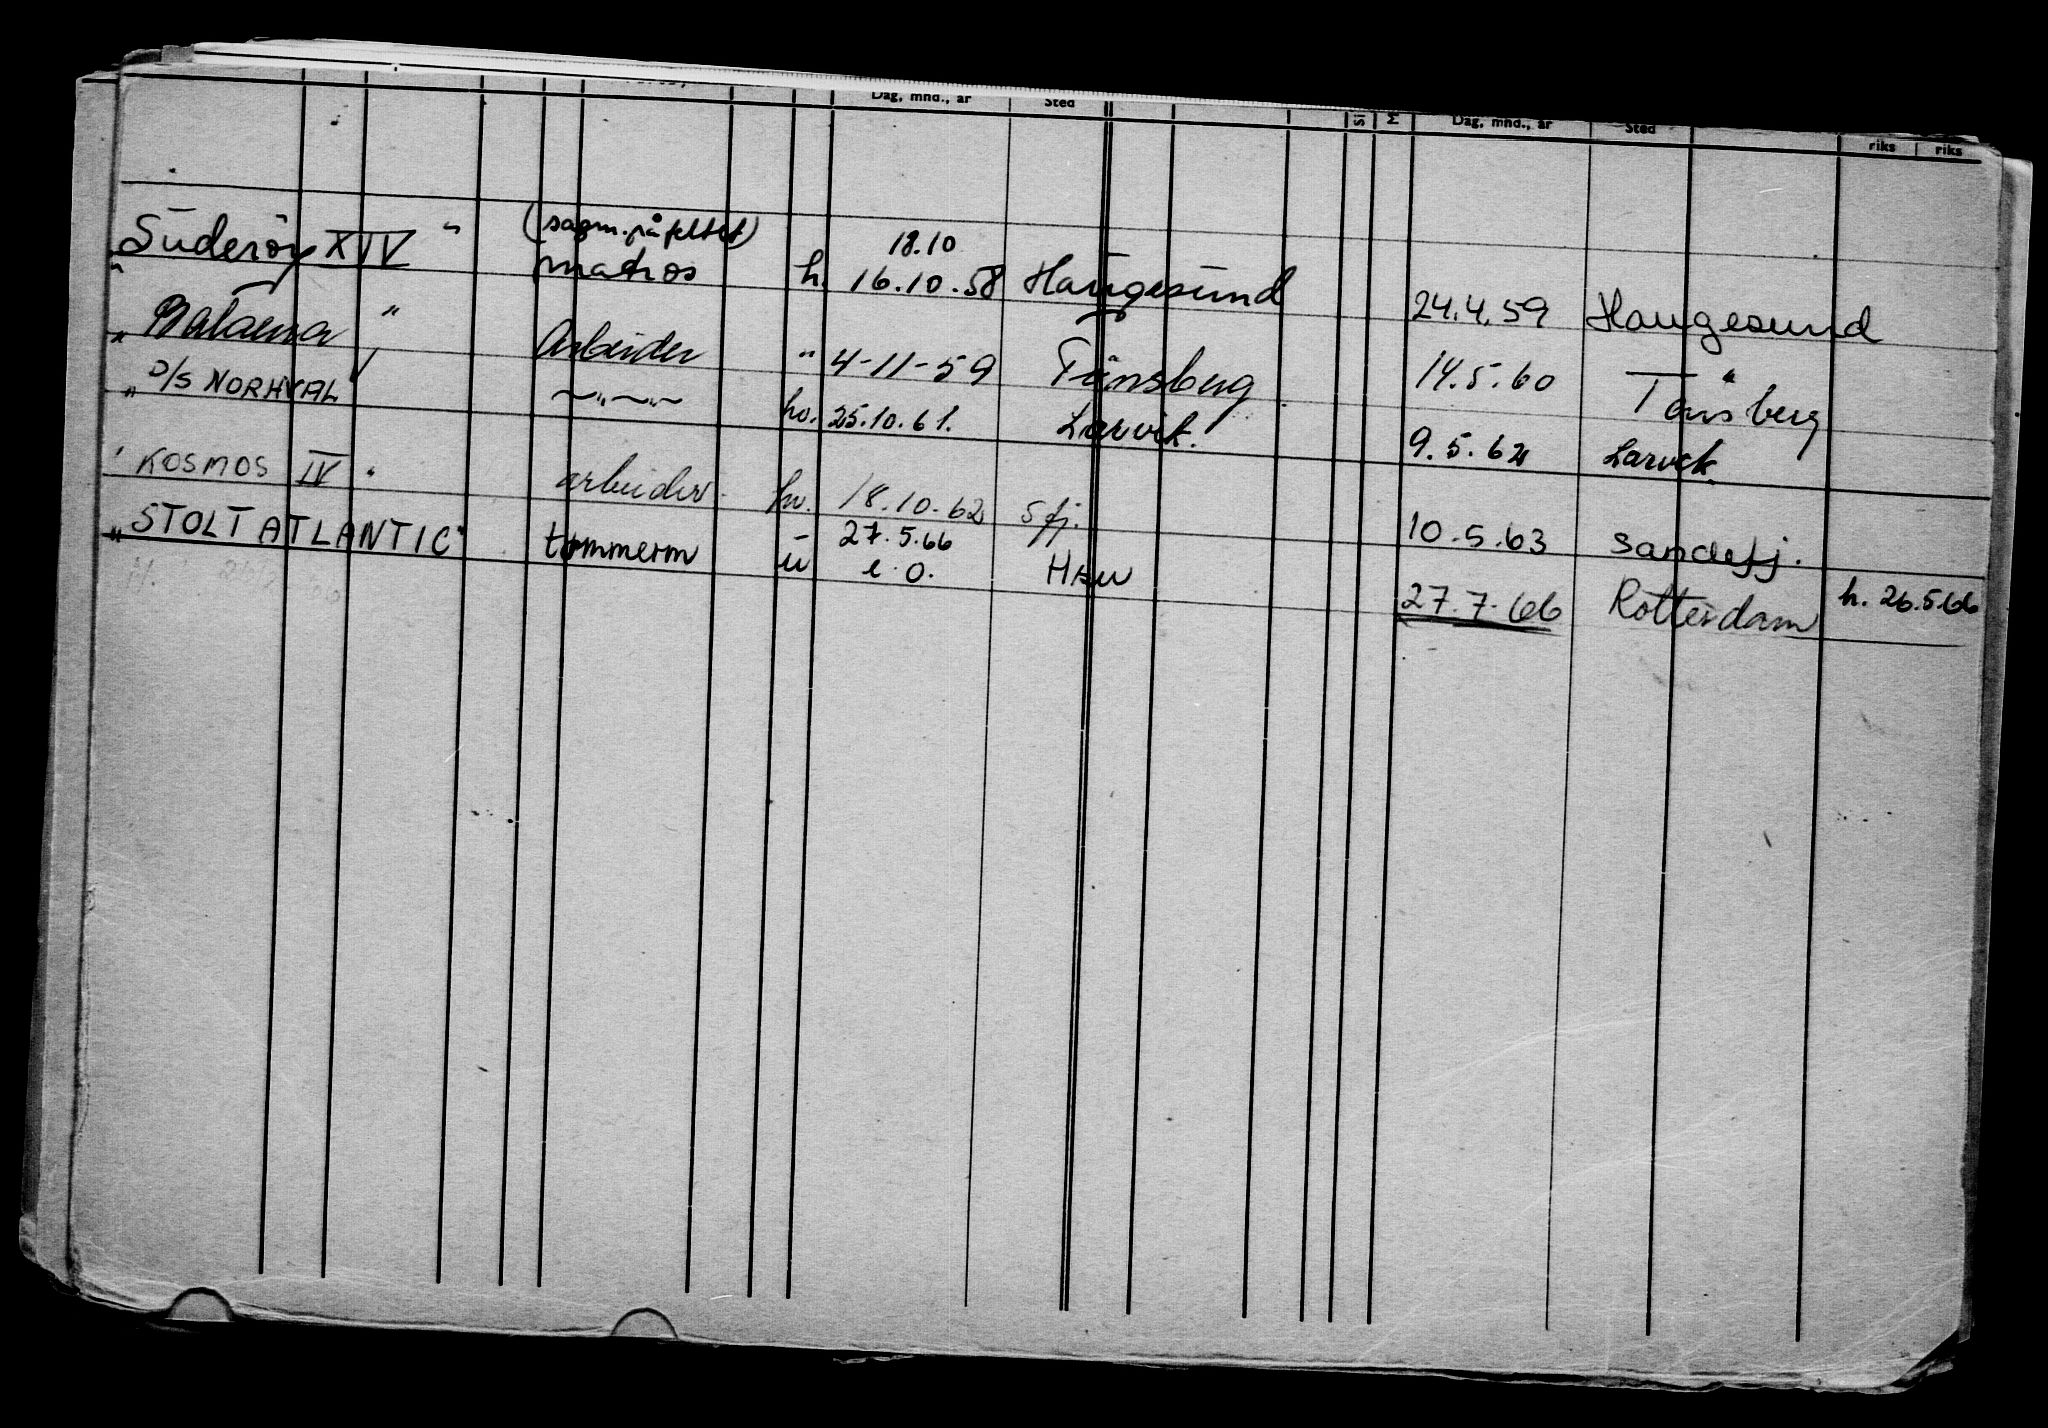 Dag, mnd., år Sted Dag, mnd., år Sted riks riks
Süderöy XIV " (sagm. på feltet) matros h. 18.10 16.10.58 Haugesund 24.4.59 Haugesund
" Balaena " Arbeider " 4-11-59 Tönsberg 14.5.60 Tönsberg
" D/S NORHVAL " —"—"— hv. 25.10.61. Larvik. 9.5.62 Larvik
" KOSMOS IV " arbeider hv. 18.10.62 Sfj. 10.5.63 Sandefj.
" STOLT ATLANTIC" tømmerm u 27.5.66 e.o. 27.7.66 Rotterdam h. 26.5.66